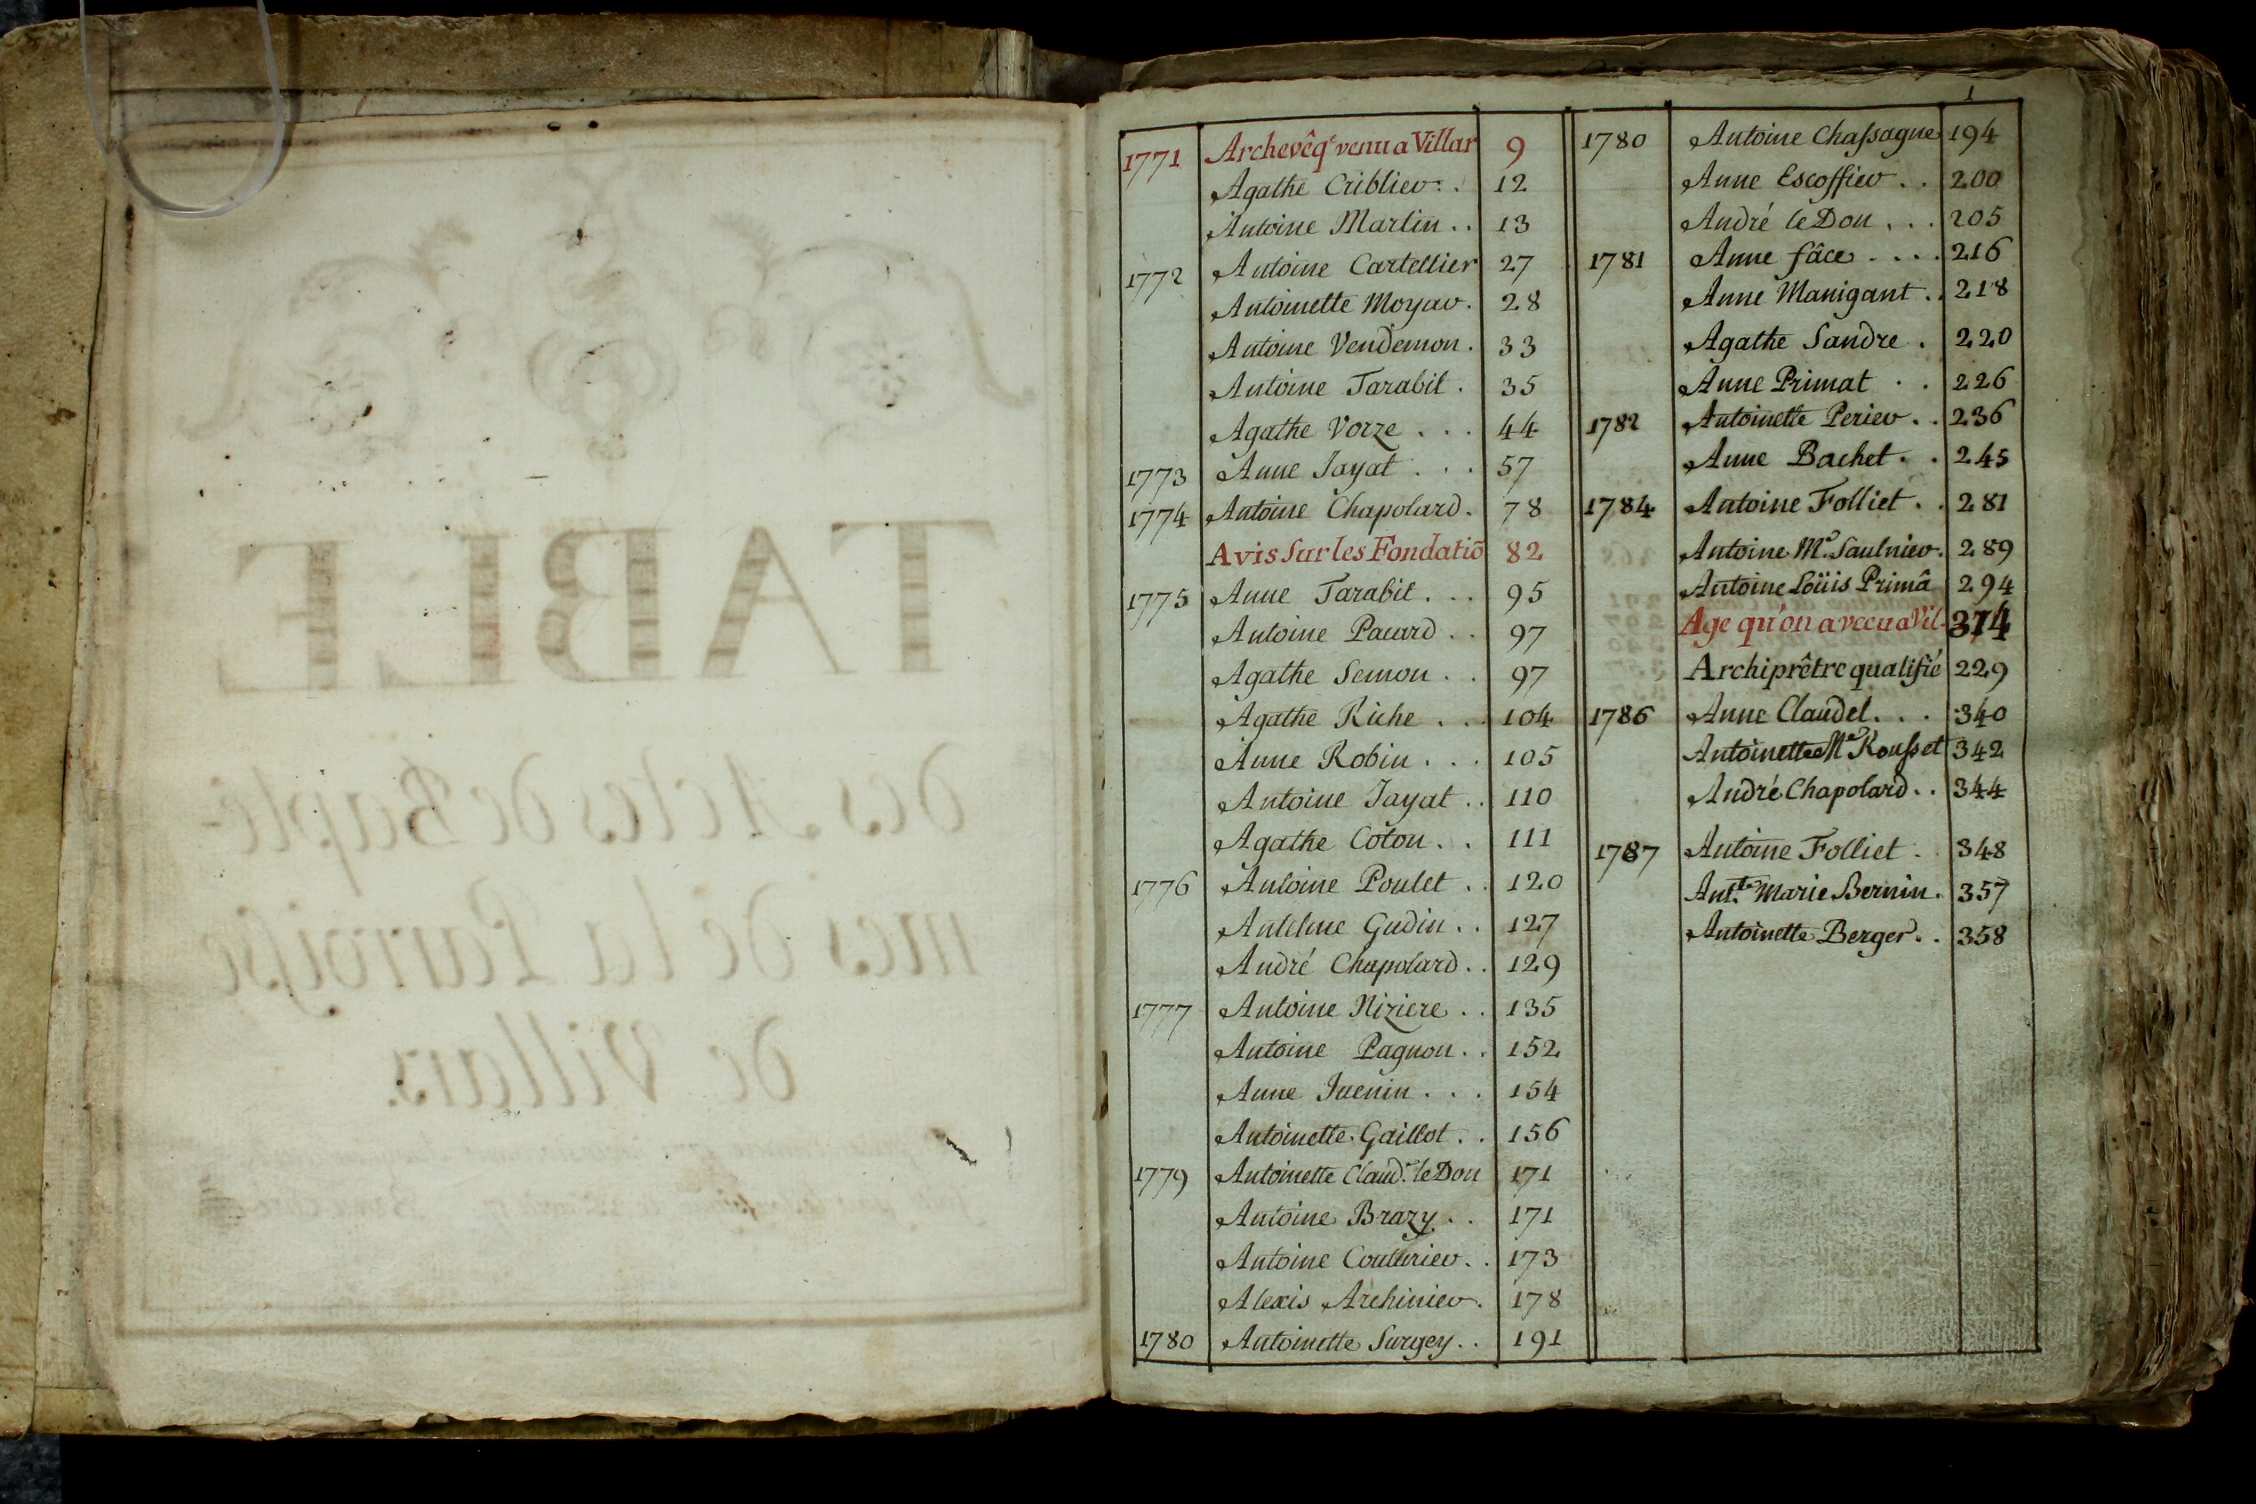 TABLE
des Actes de Baptê-
mes de la Parroisse
de Villars.
1
1771 Archevêq.e venu a Villar 9
Agathe Criblier . . 12
Antoine Martin . . 13
1772 Antoine Cartellier 27
Antoinette Moyar . 28
Antoine Vendemon . 33
Antoine Tarabit . 35
Agathe Vorze . . . 44
1773 Anne Jayat . . . 57
1774 Antoine Chapolard . 78
Avis sur les Fondatiõ 82
1775 Anne Tarabit . . . 95
Antoine Pauard . . 97
Agathe Semon . . 97
Agathe Riche . . . 104
Anne Robin . . . 105
Antoine Jayat . . 110
Agathe Coton . . 111
1776 Antoine Poulet . . 120
Antelme Gudin . . 127
André Chapolard . . 129
1777 Antoine Niziere . . 135
Antoine Pagnon . . 152
Anne Juenin . . . 154
Antoinette Gaillot . . 156
1779 Antoinette Claud.e le Don 171
Antoine Brazy . . 171
Antoine Couturier . . 173
Alexis Archinier . 178
1780 Antoinette Surgey . . 191
1780 Antoine Chassagne 194
Anne Escoffier . . 200
André le Don . . . 205
1781 Anne fâce . . . . 216
Anne Manigant . . 218
Agathe Sandre . 220
Anne Primat . . 226
1782 Antoinette Perier . . 236
Anne Bachet . . 245
1784 Antoine Folliet . . 281
Antoine M.e Saulnier . 289
Antoine Loüis Primâ 294
Age qu'on a vecu a Vil. 374
Archiprêtre qualifié 229
1786 Anne Claudel . . . 340
Antoinette M.e Rousset 342
André Chapolard . . 344
1787 Antoine Folliet . 348
Ant.te Marie Bernin . 357
Antoinette Berger . . 358